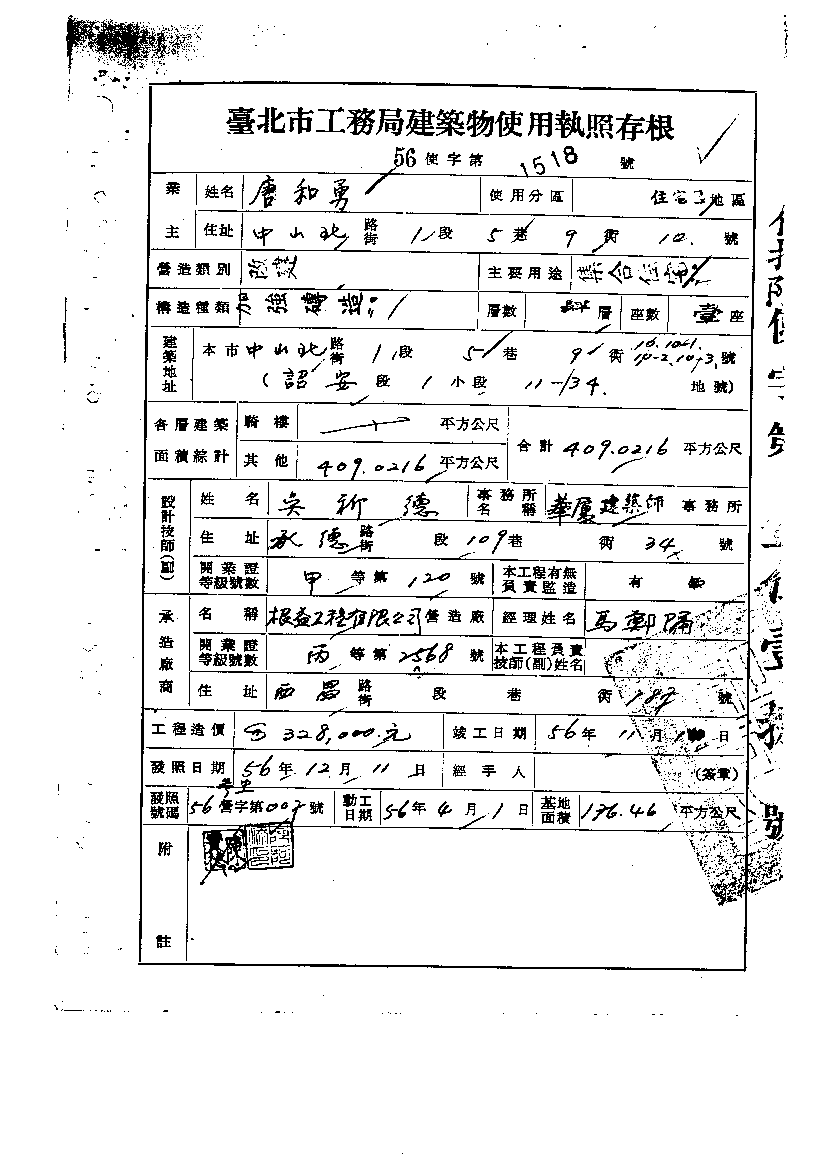 臺北市工務局建築物使用執照存根
56使字第1518號
業主 姓名 唐和勇 使用分區 住宅 地區
住址 中山北路街 1段 5巷 9街 10. 號
營造類別 改建 主要用途 集合住宅
構造種類 加強磚造 層數 層 座數 壹座
建築地址 本市中山北路街 1段 5巷 9街 10.10-1. 10-2.10-3.號
(詔安段 1小段 11-134. 地號)
各層建築面積綜計 騎樓 平方公尺 合計 409.0216 平方公尺
其他 409.0216 平方公尺
設計技師(副) 姓名 吳 德 事務所名稱 華廈建築師事務所
住址 承德路街 段 109巷 街 34 號
開業證等級號數 甲等第120號 本工程有無負責監造 有
承造廠商 名稱 根益工程有限公司營造廠 經理姓名 馬鄭
開業證等級號數 丙等第2568號 本工程員責技師(副)姓名
住址 西昌路街 段 巷 街 187 號
工程造價 328,000.元 竣工日期 56年11月 日
發照日期 56年12月11日 經手人 (簽章)
發照號碼 56營字第007號 動工日期 56年4月1日 基地面積 136.46 平方公尺
附註